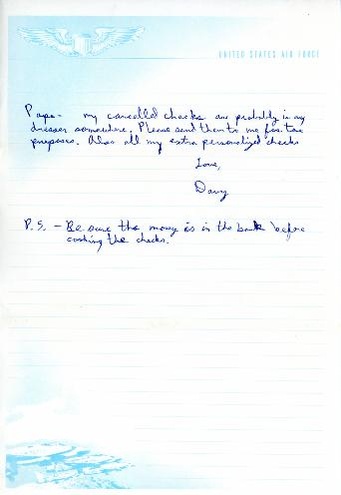 UNITED STATES AIR FORCE
Papa - my cancelled checks are probably in my
dresser somewhere. Please send them to me for tax
purposes. Also all my extra personalized checks
Love,
Davy
P.S. - Be sure the money is in the bank before
cashing the checks.